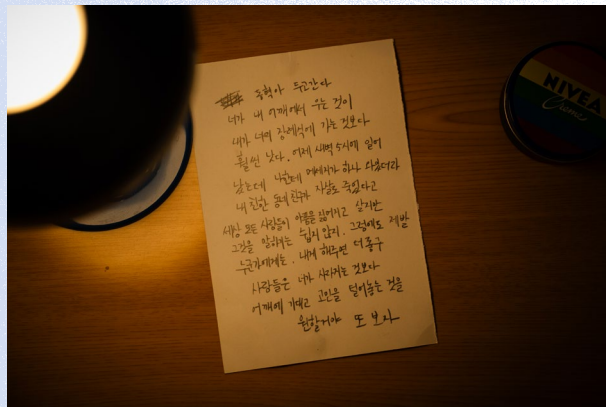 동혁아 두고간다
너가 내 어깨에서 우는 것이
내가 너의 장례식에 가는 것보다
훨씬 낫다. 어제 새벽 5시에 일어
났는데 나한테 메세지가 하나 와있더라
내 친한 동네 친구가 자살로 죽었다고
세상 모든 사람들이 아픔을 짊어지고 살지만
그것을 말하기는 쉽지 않지. 그럼에도 제발
누군가에게는. 내게 해주면 더 좋구
사람들은 너가 사라지는 것보다
어깨에 기대고 고민을 털어놓는 것을
원할거야 또 보자
NIVEA
Creme